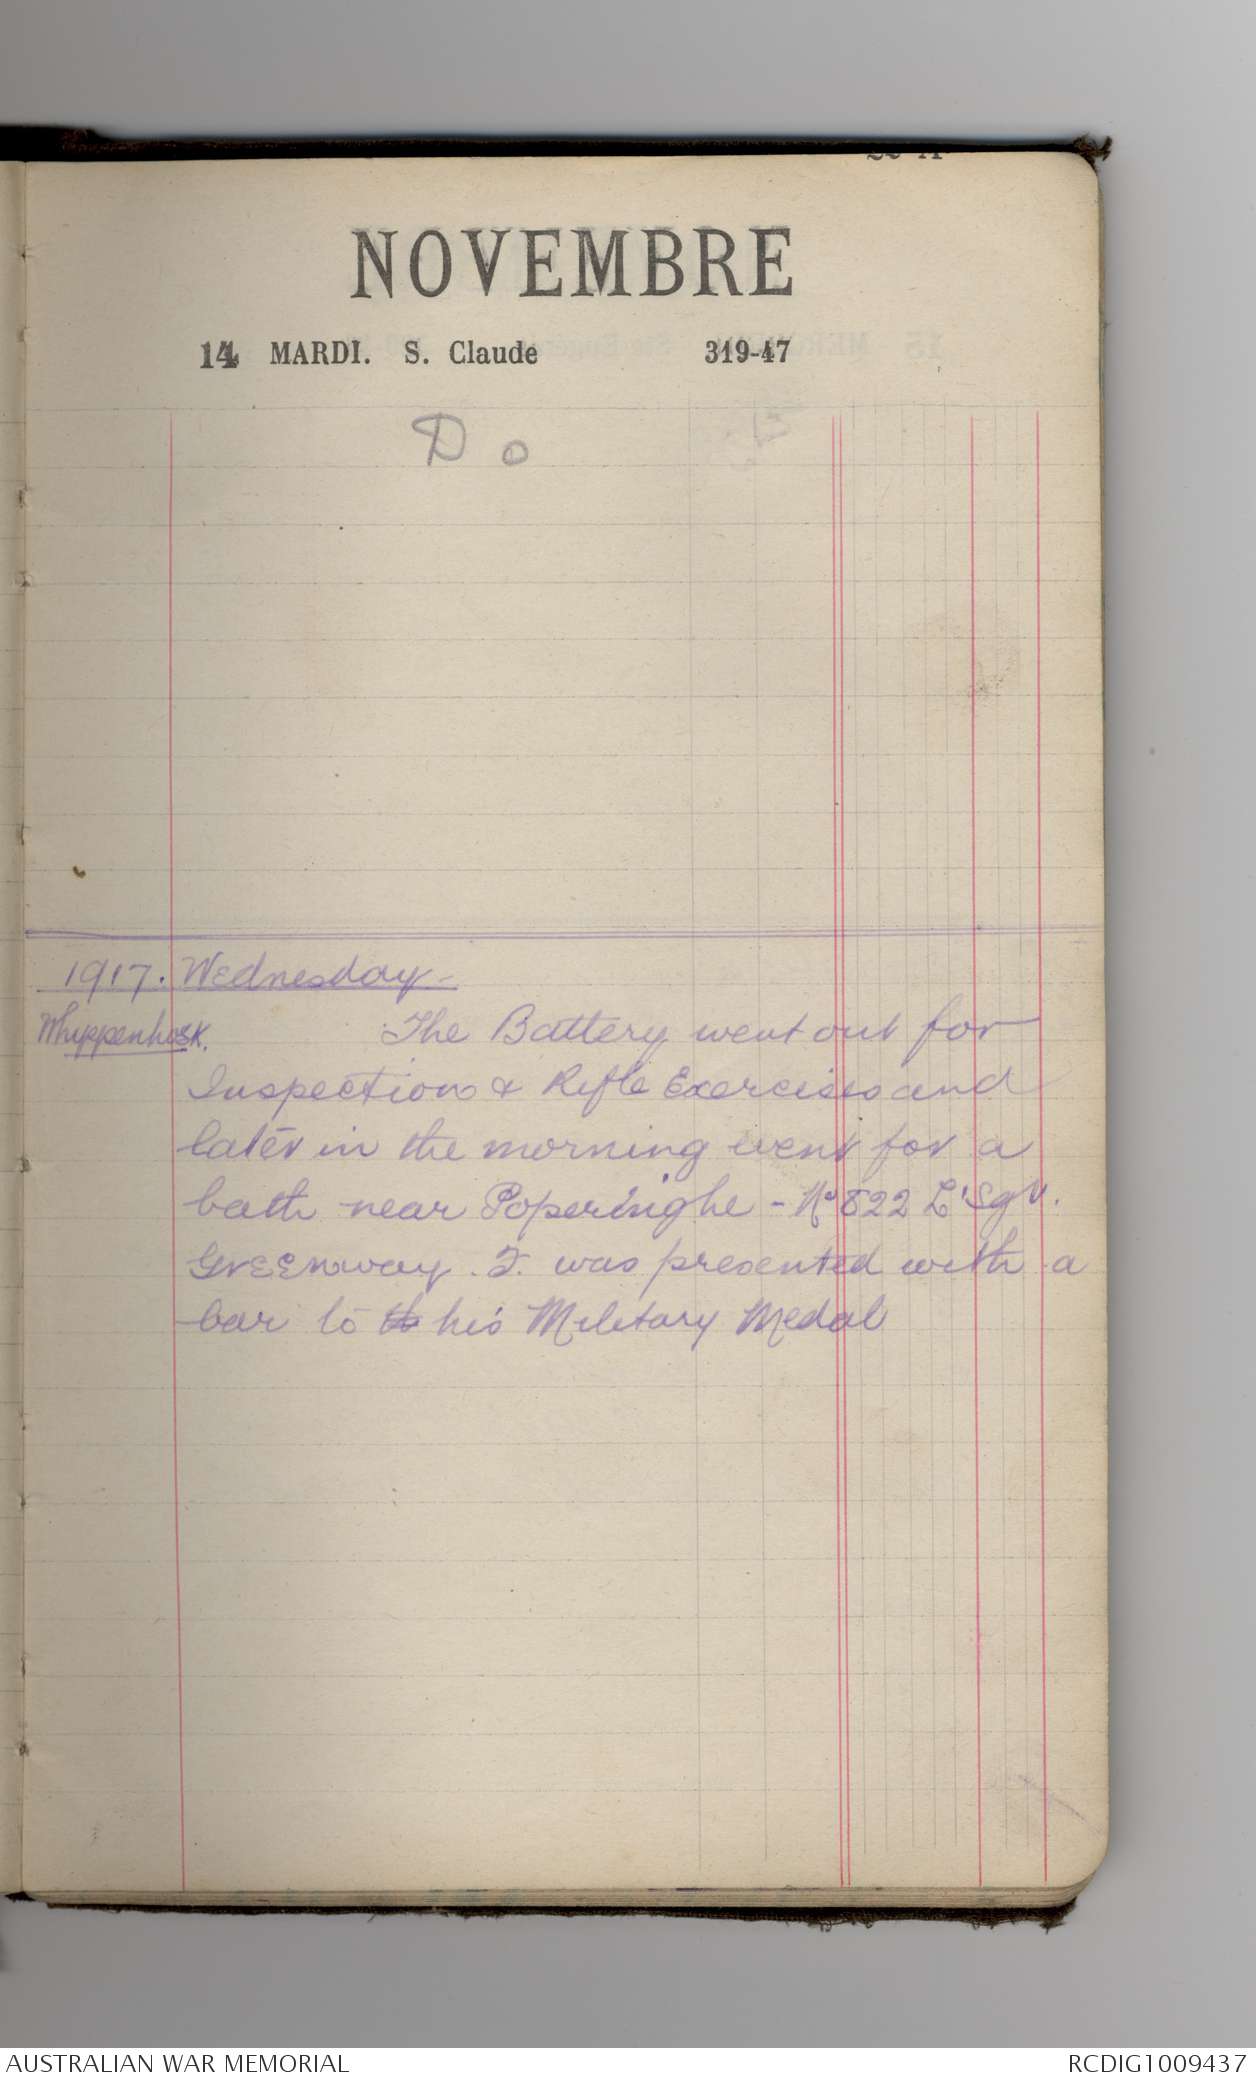 NOVEMBRE
14 MARDI. S. Claude 319-47
D o
1917. Wednesday -
Whippenhoek. The Battery went out for
Inspection & Rifle Exercises and
later in the morning went for a
bath near Poperinghe - No 822 L' Sgt.
Greenway. F. was presented with a
bar to th his Military Medal
AUSTRALIAN WAR MEMORIAL RCDIG1009437